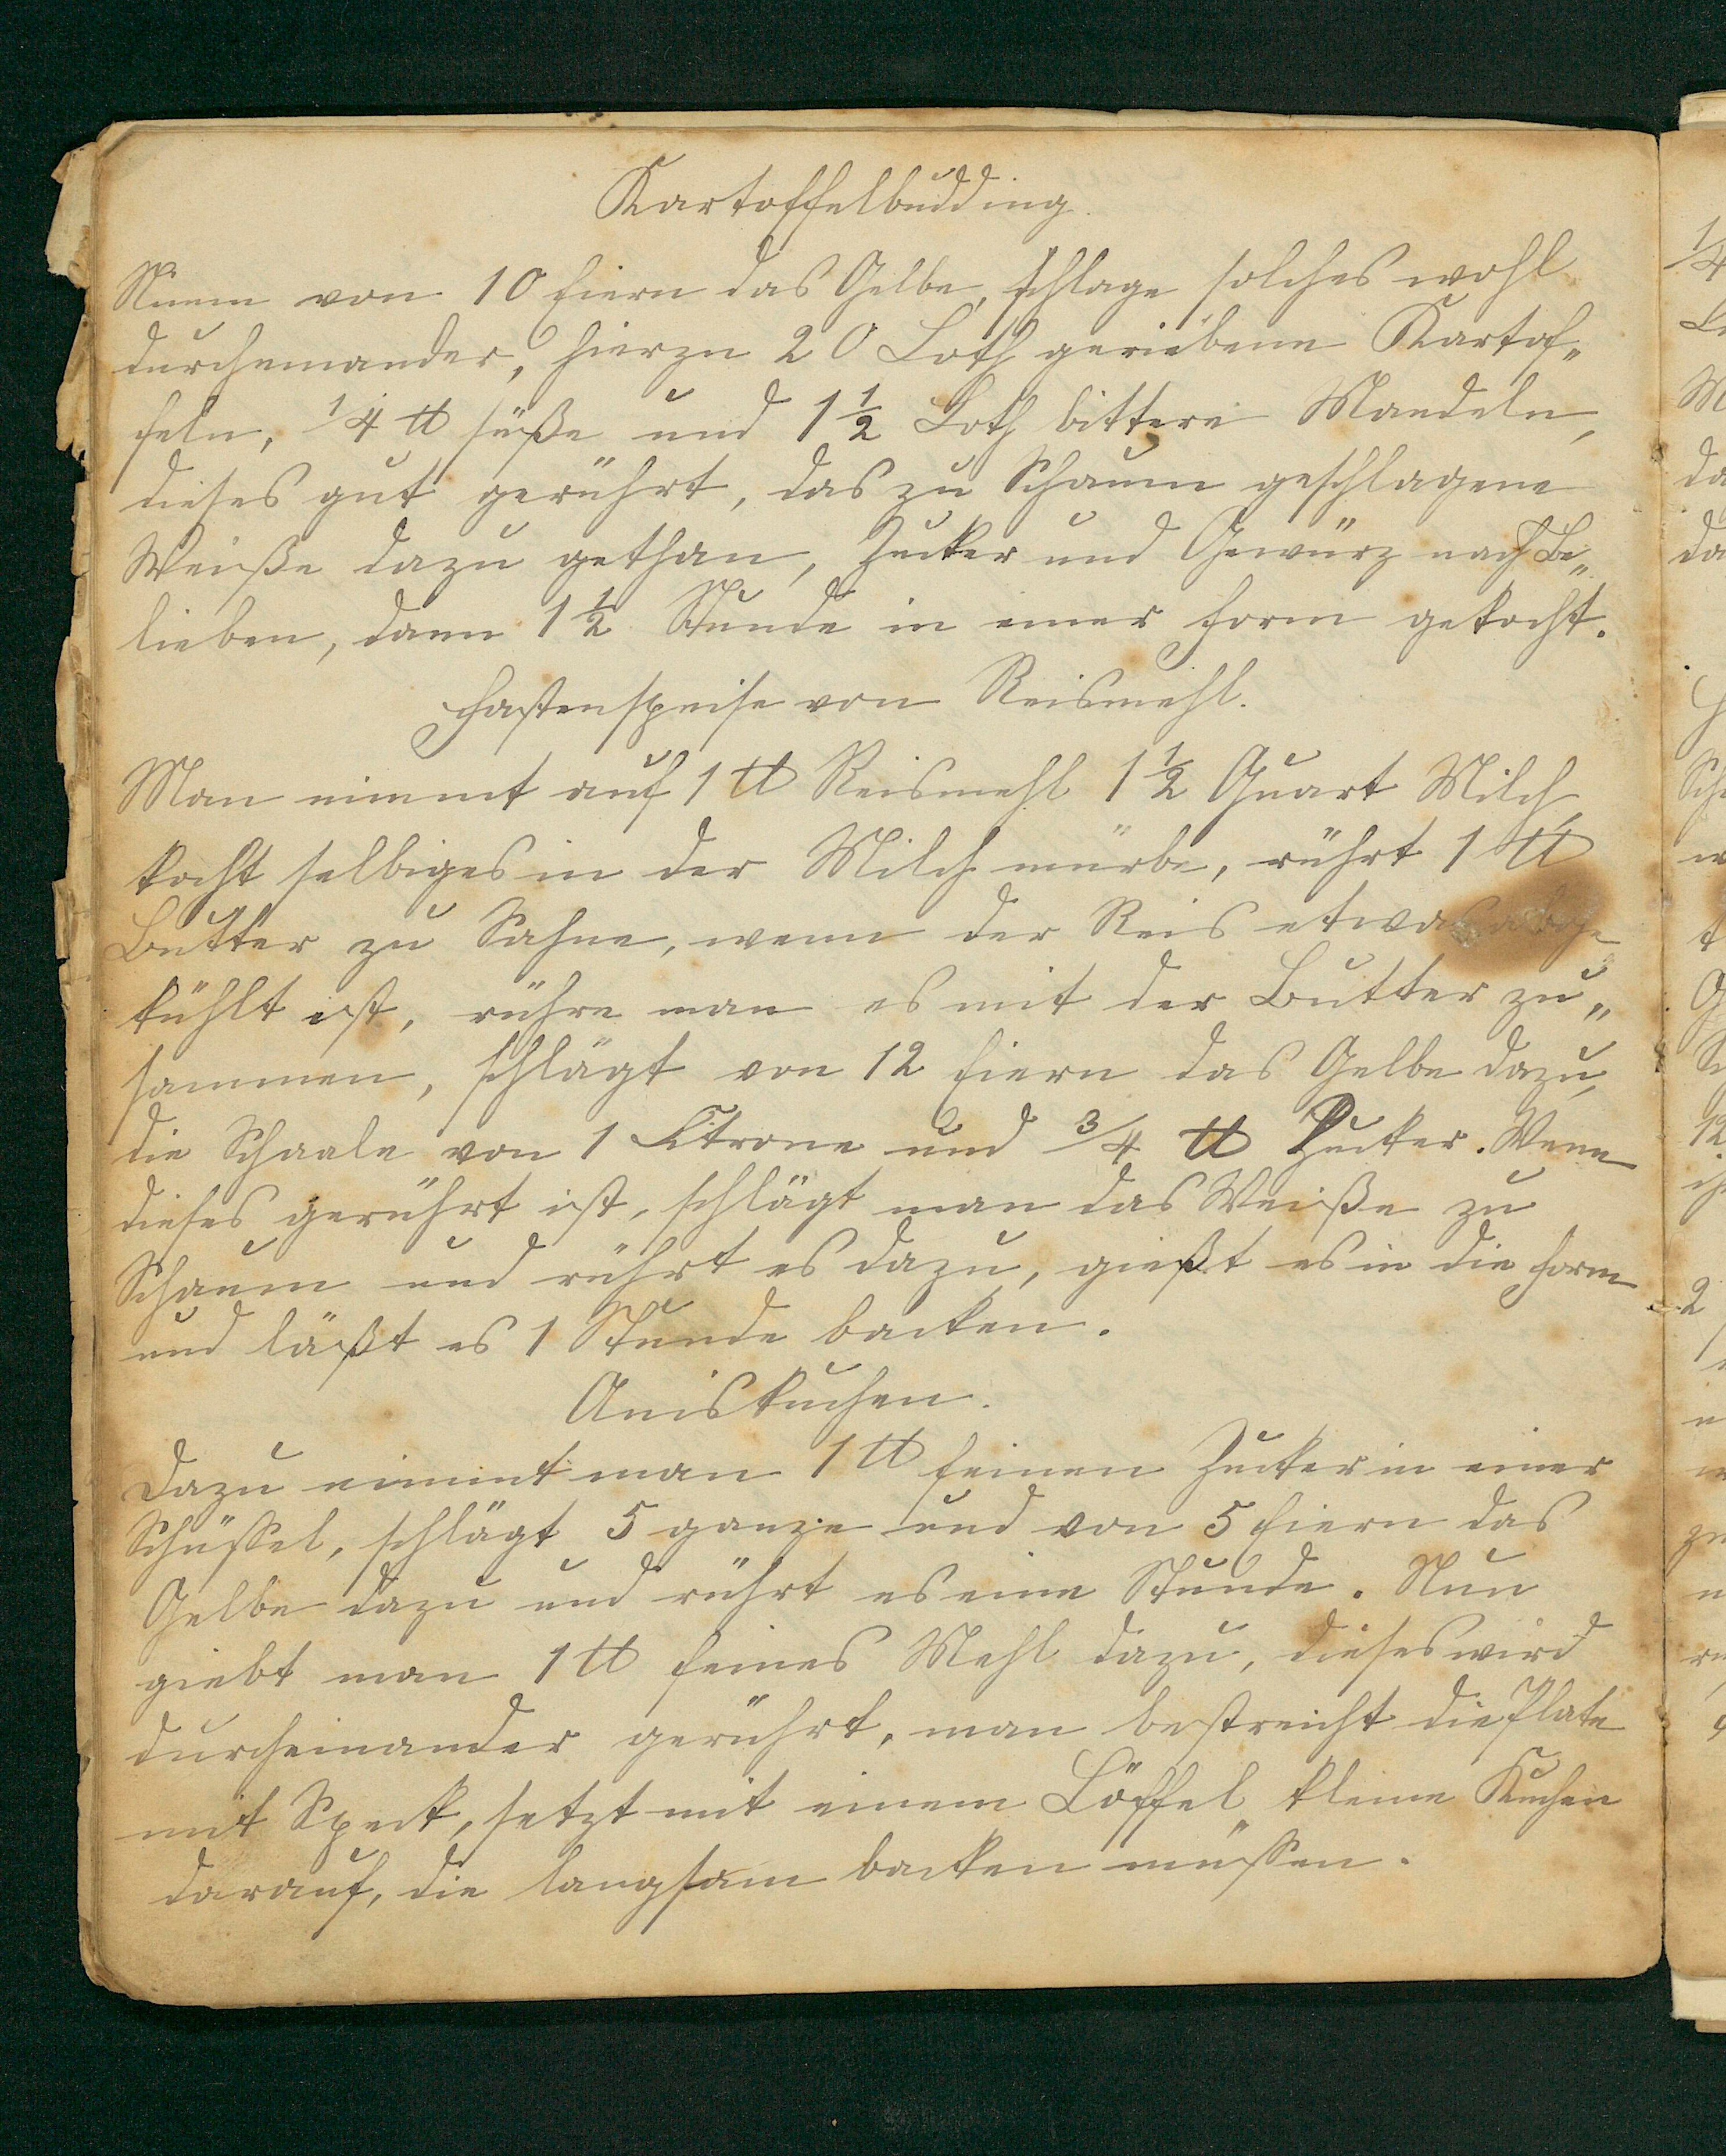 Kartoffelbudding.
Nimm von 10 Eiern das Gelbe, schlage solches wohl
durcheinander, hierzu 20 Loth geriebene Kartof„
feln, 1/4 ℔ süße und 1 1/2 Loth bittere Mandeln,
dieses gut gerührt, das zu Schaum geschlagene
Weiße dazu gethan, Zucker und Gewürz nach Be„
lieben, dann 1 1/2 Stunde in einer Form gekocht.
Fastenspeise von Reismehl.
Man nimmt auf 1 ℔ Reismehl 1 1/2 Quart Milch,
kocht selbiges in der Milch mürbe, rührt 1 ℔
Butter zu Sahne, wenn der Reis etwas abge
kühlt ist, rühre man es mit der Butter zu„
sammen, schlägt von 12 Eiern das Gelbe dazu,
die Schaale von 1 Citrone und 3/4 ℔ Zucker. Wenn
dieses gerührt ist, schlägt man das Weiße zu
Schaum und rührt es dazu, gießt es in die Form
und läßt es 1 Stunde backen.
Aniskuchen.
Dazu nimmt man 1 ℔ feinen Zucker in einer
Schüssel, schlägt 5 ganze und von 5 Eiern das
Gelbe dazu und rührt es eine Stunde. Nun
giebt man 1 ℔ feines Mehl dazu, dieses wird
durcheinander gerührt, man bestreicht die Plate
mit Speck, setzt mit einem Löffel kleine Kuchen
darauf, die langsam backen müssen.